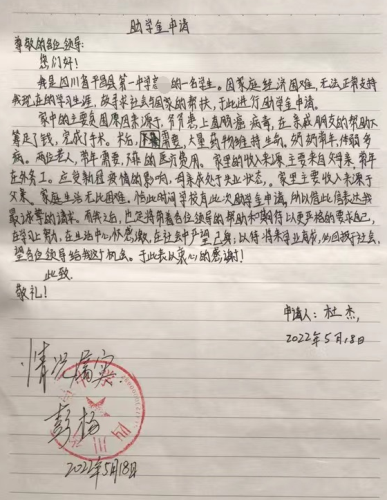 助学金申请
尊敬的各位领导:
您们好!
我是四川省平昌县第一中学 的一名学生。因家庭经济困难,无法正常支持
我现在的学习生涯,故寻求社会与国家的帮扶,于此进行助学金申请。
家中的主要负困原因来源于,爷爷患上直肠癌病毒,在亲戚朋友的帮助下
算足了钱,完成了手术。术后,需要大量药物维持生命。奶奶常年体弱多
病。两位老人,常年需要大笔的医疗费用。家里的收入来源主要来自父母亲,常年
在外务工。应受新冠疫情的影响,母亲成处于失业状态。家里主要收入来源于
父亲。家庭生活无比困难,恰此时间学校有此次助学金申请,故以借此信表达我
最诚挚的请求。而我之后,也定将带着各位领导的帮助和期待以更严格的要求自己,
在学习上努力,在生活中心怀感激,在社会中严望己身;以待将来学业有成,必回报于社会,
望各位领导给我这个机会。于此表以衷心的感谢!
此致
敬礼!
申请人:杜杰,
2022年5月18日
情况属实
彭杨
2022年5月18日